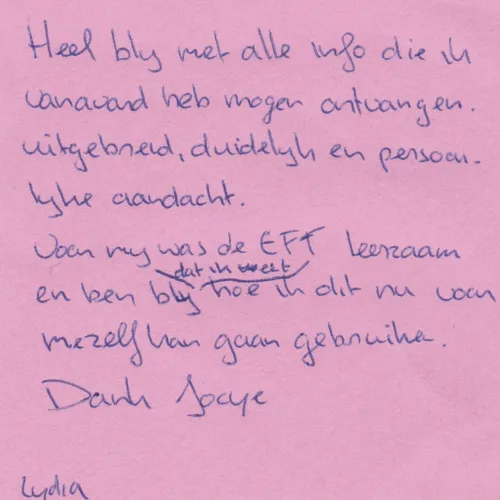 Heel blij met alle info die ik
vanavond heb mogen ontvangen.
uitgebreid, duidelijk en persoon-
lijke aandacht.
Voor mij was de EFT leerzaam
dat ik weet
en ben blij hoe ik dit nu voor
mezelf kan gaan gebruiken.
Dank Jocye
Lydia